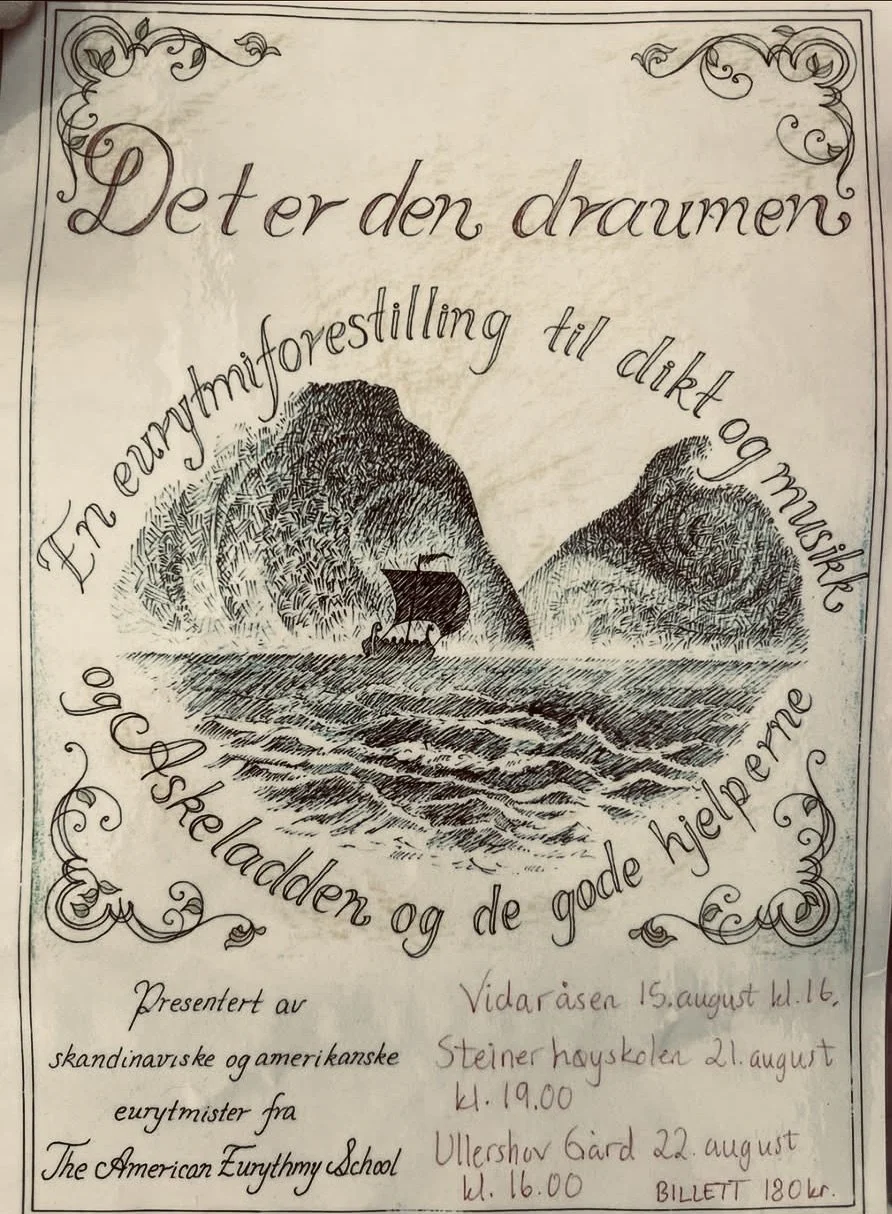 Det er den draumen
En eurytmiforestilling til dikt og musikk
og Askeladden og de gode hjelperne
Presentert av
skandinaviske og amerikanske
eurytmister fra
The American Eurythmy School
Vidaråsen 15. august kl. 16.
Steinerhøyskolen 21. august
kl. 19.00
Ullershov Gård 22. august
kl. 16.00 BILLETT 180 kr.